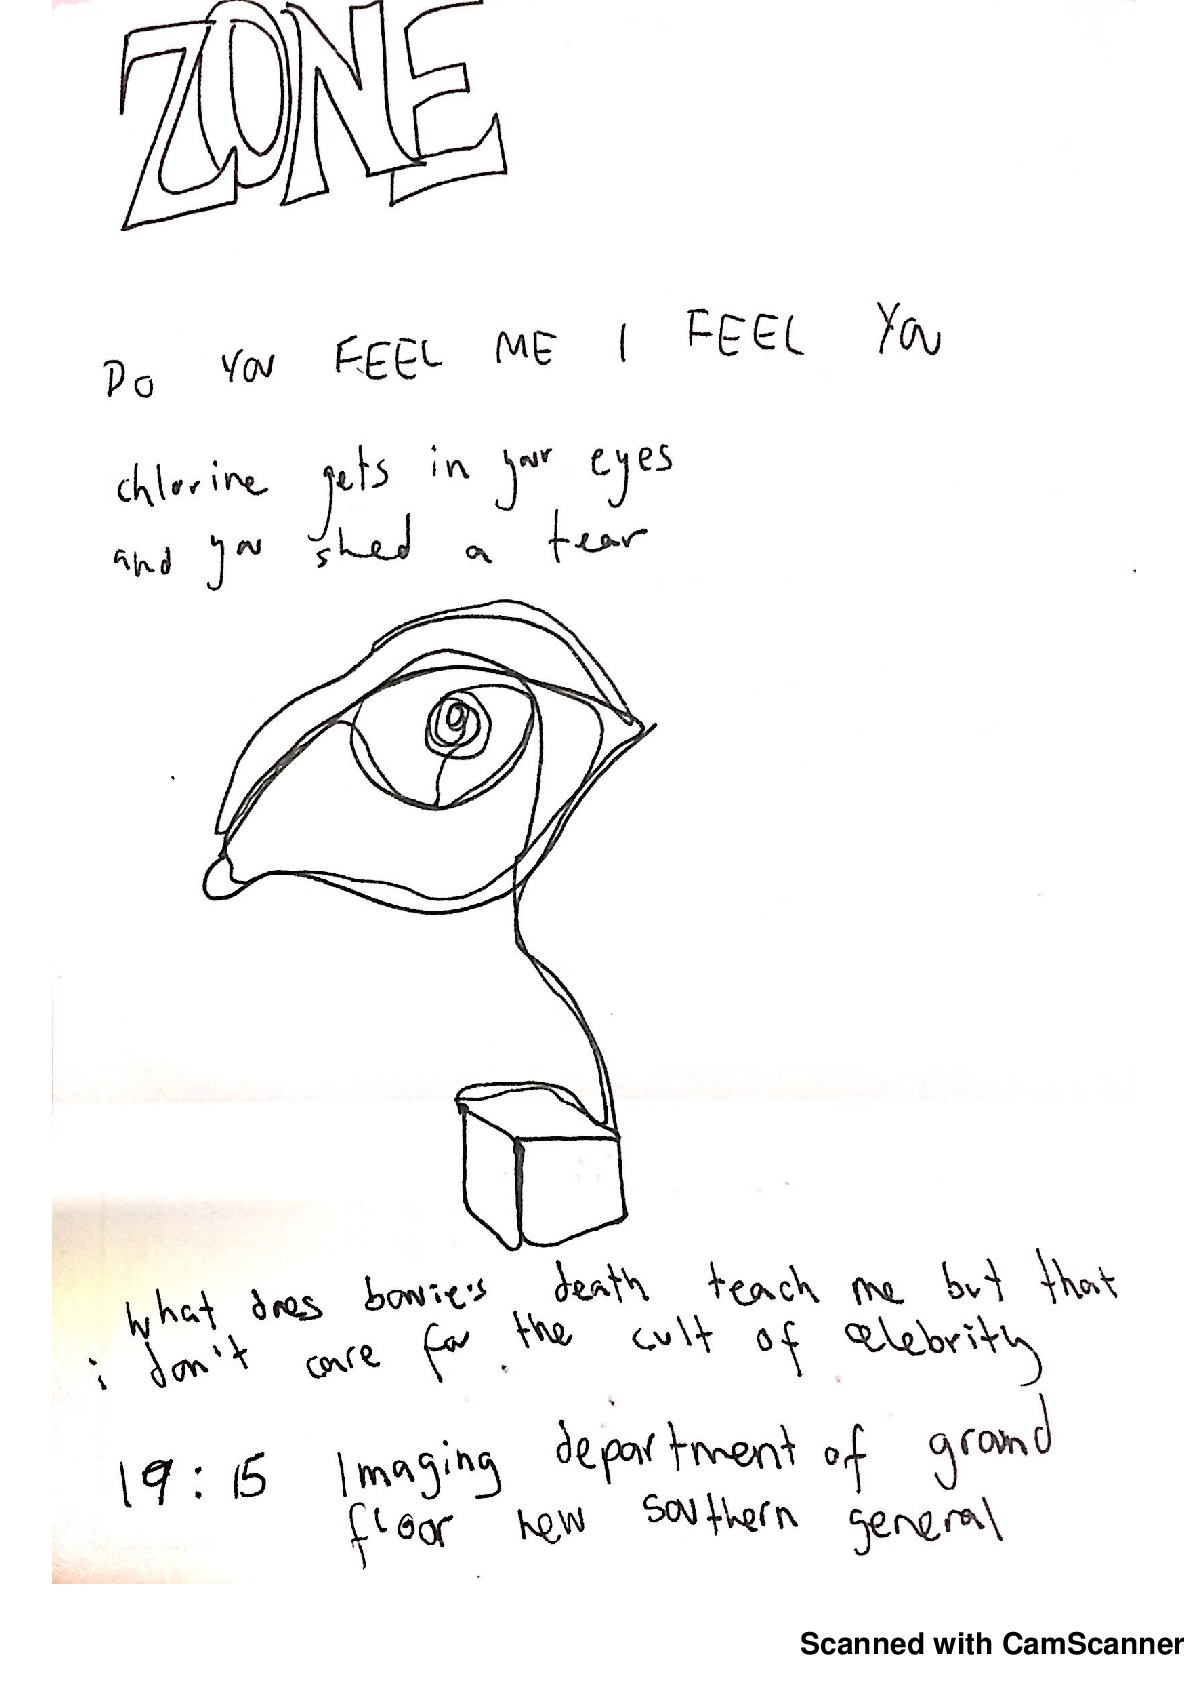 ZONE
DO YOU FEEL ME I FEEL YOU
chlorine gets in your eyes
and you shed a tear
what does bowie's death teach me but that
i don't care for the cult of celebrity
19:15 Imaging department of ground
floor new southern general
Scanned with CamScanner